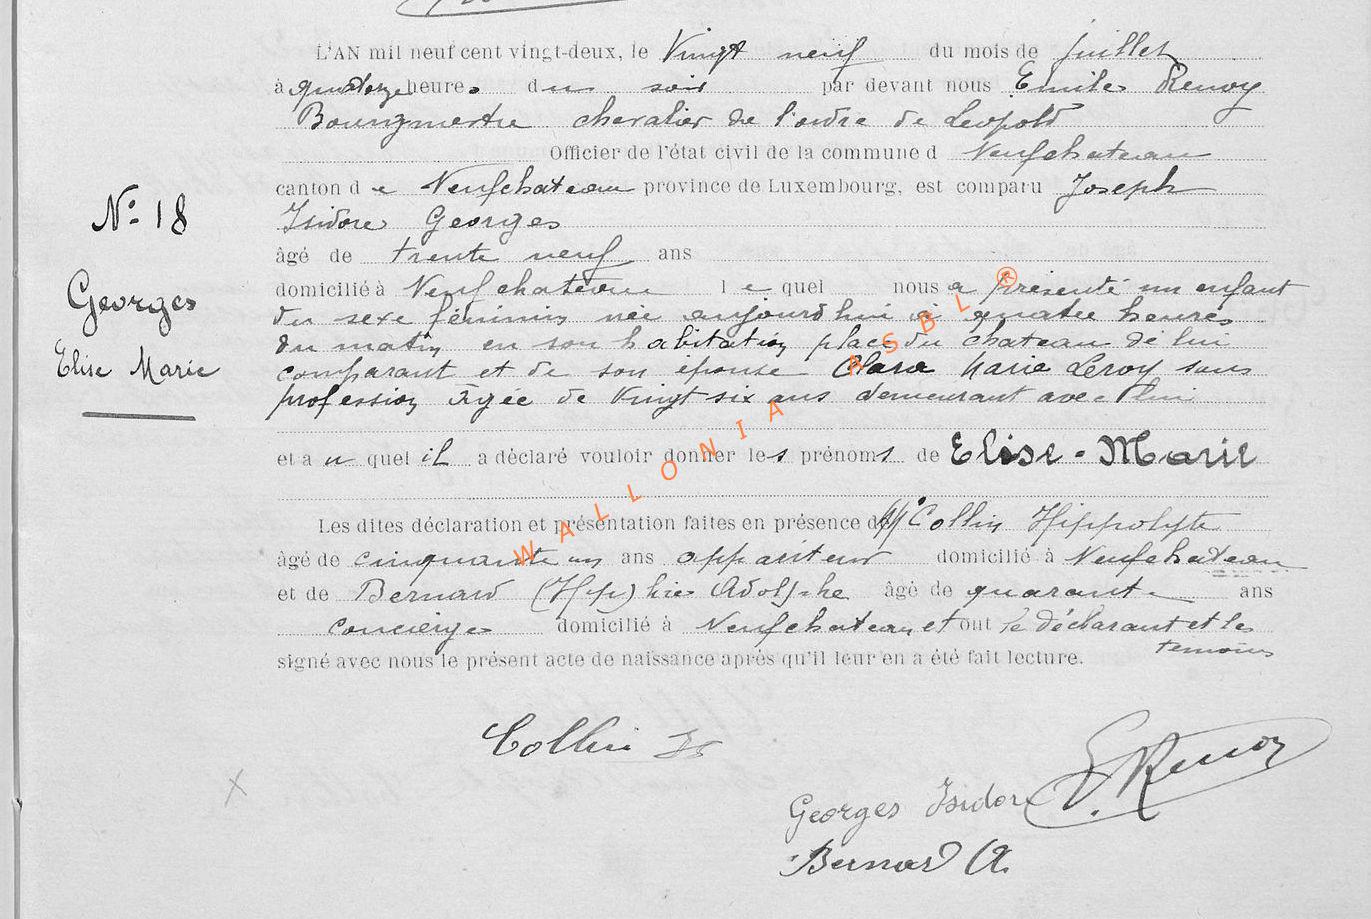 L'AN mil neuf cent vingt-deux, le Vingt neuf du mois de juillet
à quatorze heures du soir par devant nous Emile Renoy
Bourgmestre chevalier de l'ordre de Léopold
Officier de l'état civil de la commune d Neufchateau
canton d e Neufchateau province de Luxembourg, est comparu Joseph
Isidore Georges
âgé de trente neuf ans
domicilié à Neufchateau l e quel nous a présenté un enfant
du sexe féminin née aujourd'hui à quatre heures
du matin en son habitation place du chateau de lui
comparant et de son épouse Clara Marie Leroy sans
profession agée de Vingt six ans demeurant avec lui
et a u quel il a déclaré vouloir donner les prénoms de Elise-Marie
Les dites déclaration et présentation faites en présence de Mr Collin Hippolyte
âgé de cinquante un ans appariteur domicilié à Neufchateau
et de Bernard Adolphe âgé de quarante ans
concierge domicilié à Neufchateau et ont le déclarant et les
témoins
signé avec nous le présent acte de naissance après qu'il leur en a été fait lecture.
No 18
Georges
Elise Marie
WALLONIA ASBL ®
Collin
E. Renoy
Georges Isidore
Bernard A.